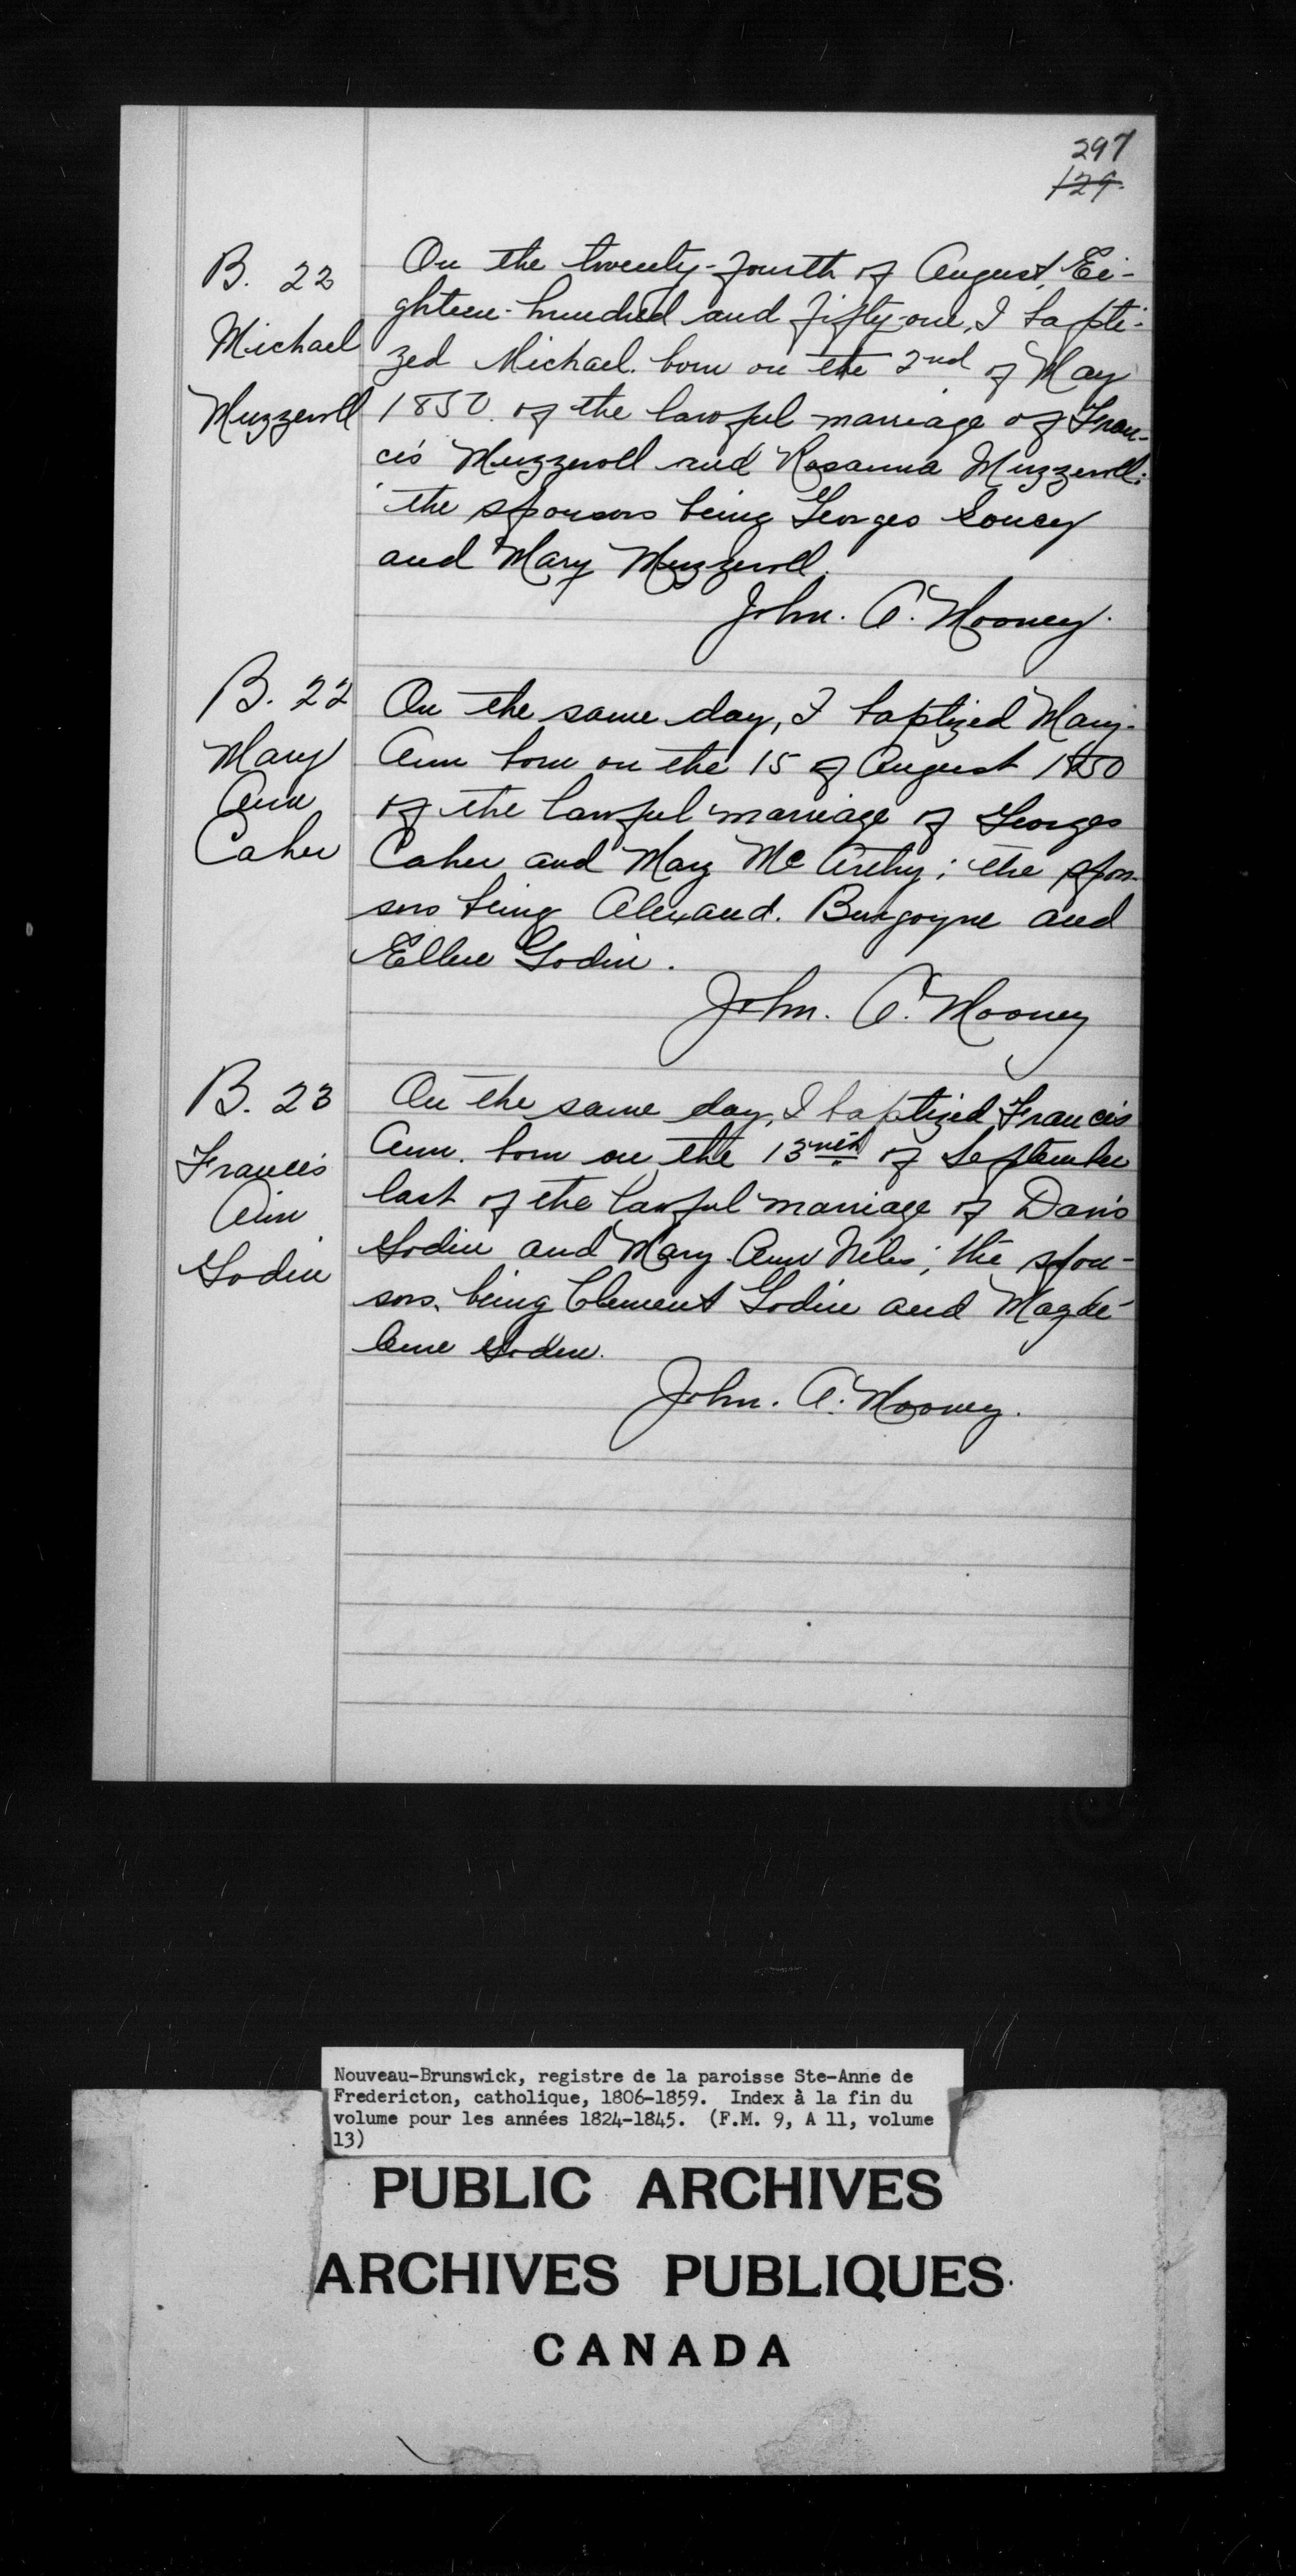 297
129.
B. 22
Michael
Muzzeroll
On the twenty-fourth of August, Ei-
ghteen-hundred and fifty-one, I bapti-
zed Michael. born on the 2nd of May
1850. of the lawful marriage of Fran-
cis Muzzeroll and Rosanna Muzzeroll;
the sponsors being Georges Soucy
and Mary Muzzeroll.
John. A. Mooney.
B. 22
Mary
Ann
Caher
On the same day, I baptized Mary-
Ann born on the 15 of August 1850
of the lawful marriage of Georges
Caher and Mary Mc Arthy; the spon-
sors being Alexand. Burgoyne and
Ellen Godin.
John. A. Mooney
B. 23
Francis
Ann
Godin
On the same day, I baptized Francis
Ann. born on the 13 of September
last of the lawful marriage of Davis
Godin and Mary-Ann Niles; the spon-
sors. being Clement Godin and Magde-
leine Godin.
John. A. Mooney.
Nouveau-Brunswick, registre de la paroisse Ste-Anne de
Fredericton, catholique, 1806-1859. Index à la fin du
volume pour les années 1824-1845. (F.M. 9, A 11, volume
13)
PUBLIC ARCHIVES
ARCHIVES PUBLIQUES
CANADA